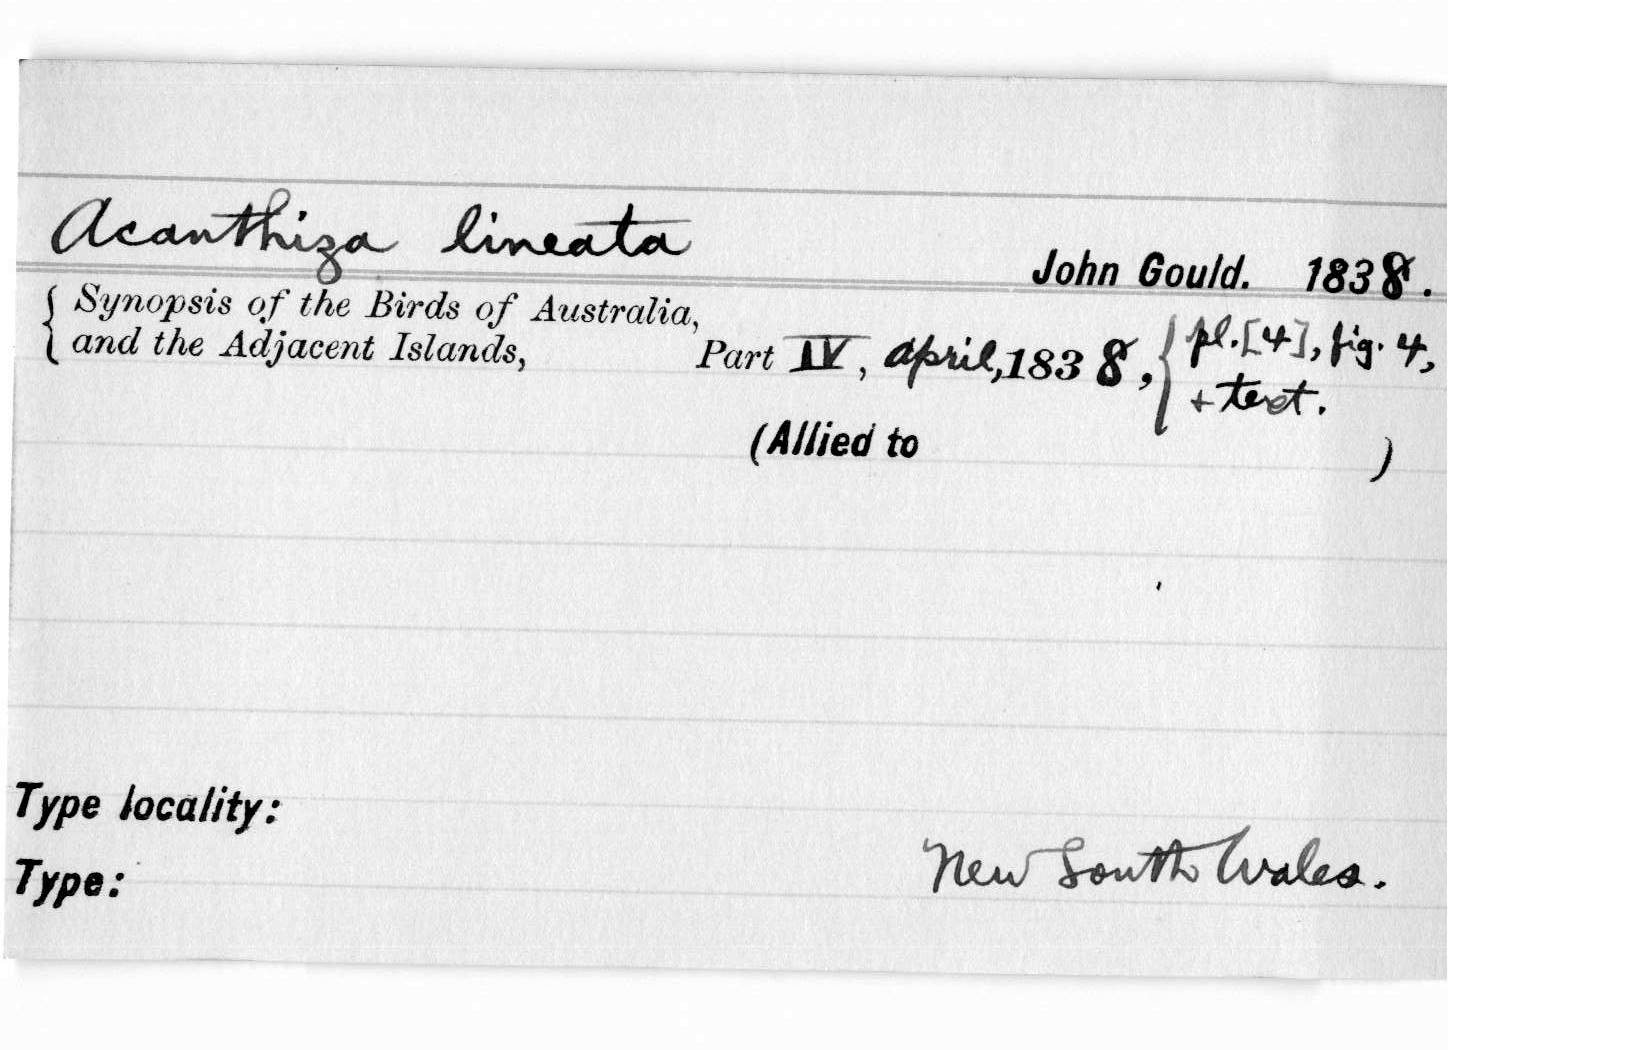 Acanthiza lineata
John Gould. 1838.
Synopsis of the Birds of Australia,
and the Adjacent Islands, Part IV, April, 1838, { pl. [4], fig. 4,
+ text.
(Allied to )
Type locality:
New South Wales.
Type: